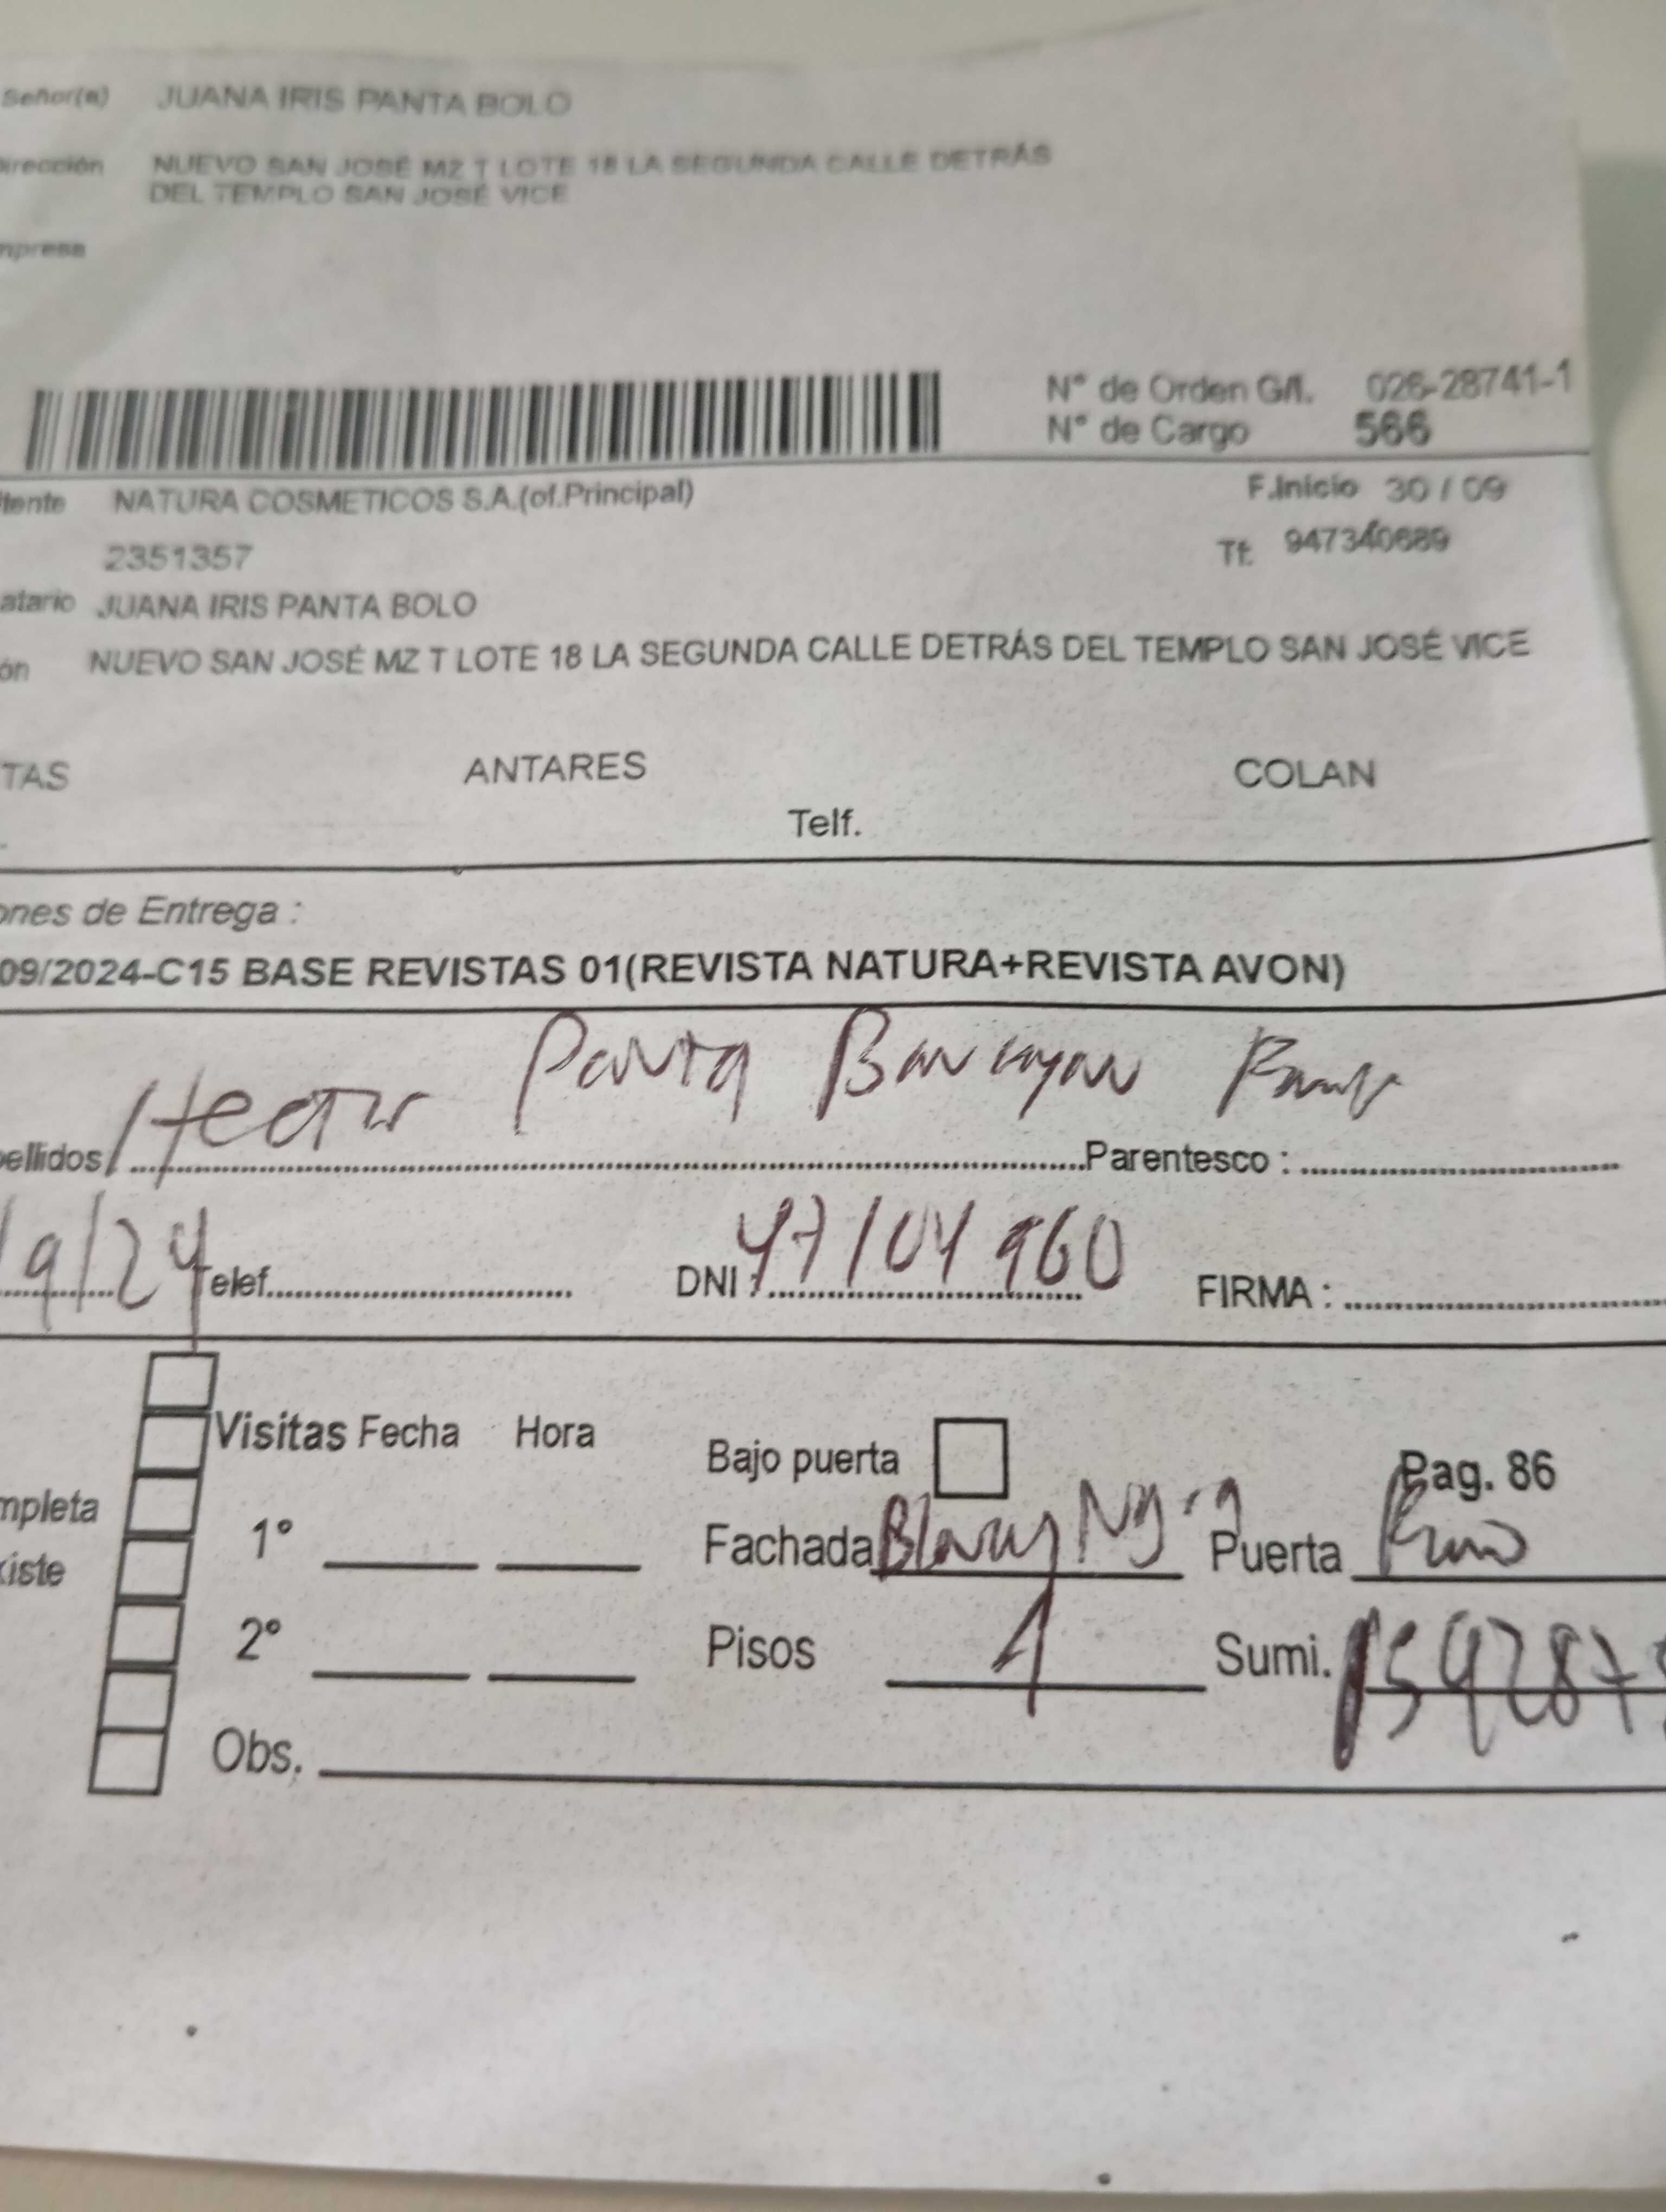 Señor(a) JUANA IRIS PANTA BOLO
irección NUEVO SAN JOSÉ MZ T LOTE 18 LA SEGUNDA CALLE DETRÁS
DEL TEMPLO SAN JOSÉ VICE
mpresa
N° de Orden G/I. 026-28741-1
N° de Cargo 566
itente NATURA COSMETICOS S.A.(of.Principal) F.Inicio 30 / 09
2351357 Tf. 947340689
atario JUANA IRIS PANTA BOLO
ón NUEVO SAN JOSÉ MZ T LOTE 18 LA SEGUNDA CALLE DETRÁS DEL TEMPLO SAN JOSÉ VICE
TAS ANTARES COLAN
Telf.
ones de Entrega :
09/2024-C15 BASE REVISTAS 01(REVISTA NATURA+REVISTA AVON)
Hector Panta
pellidos Parentesco :
/9/24 Telef. DNI : 47104960 FIRMA :
Visitas Fecha Hora Bajo puerta Pag. 86
mpleta 1° Fachada Puerta
xiste
2° Pisos 1 Sumi. 1592875
Obs.